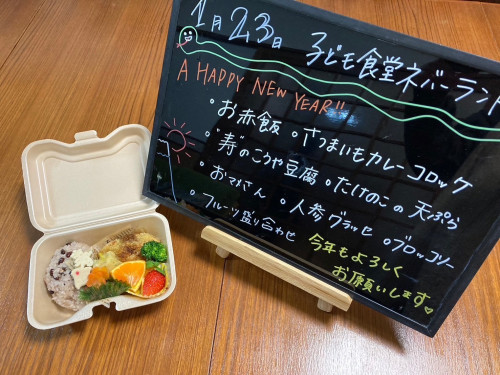 1月23日 子ども食堂ネバーランド
A HAPPY NEW YEAR!!
・お赤飯 ・さつまいもカレーコロッケ
・"寿"のこうや豆腐 ・たけのこの天ぷら
・おマメさん ・人参グラッセ ・ブロッコリー
・フルーツ盛り合わせ
今年もよろしく
お願いします♡